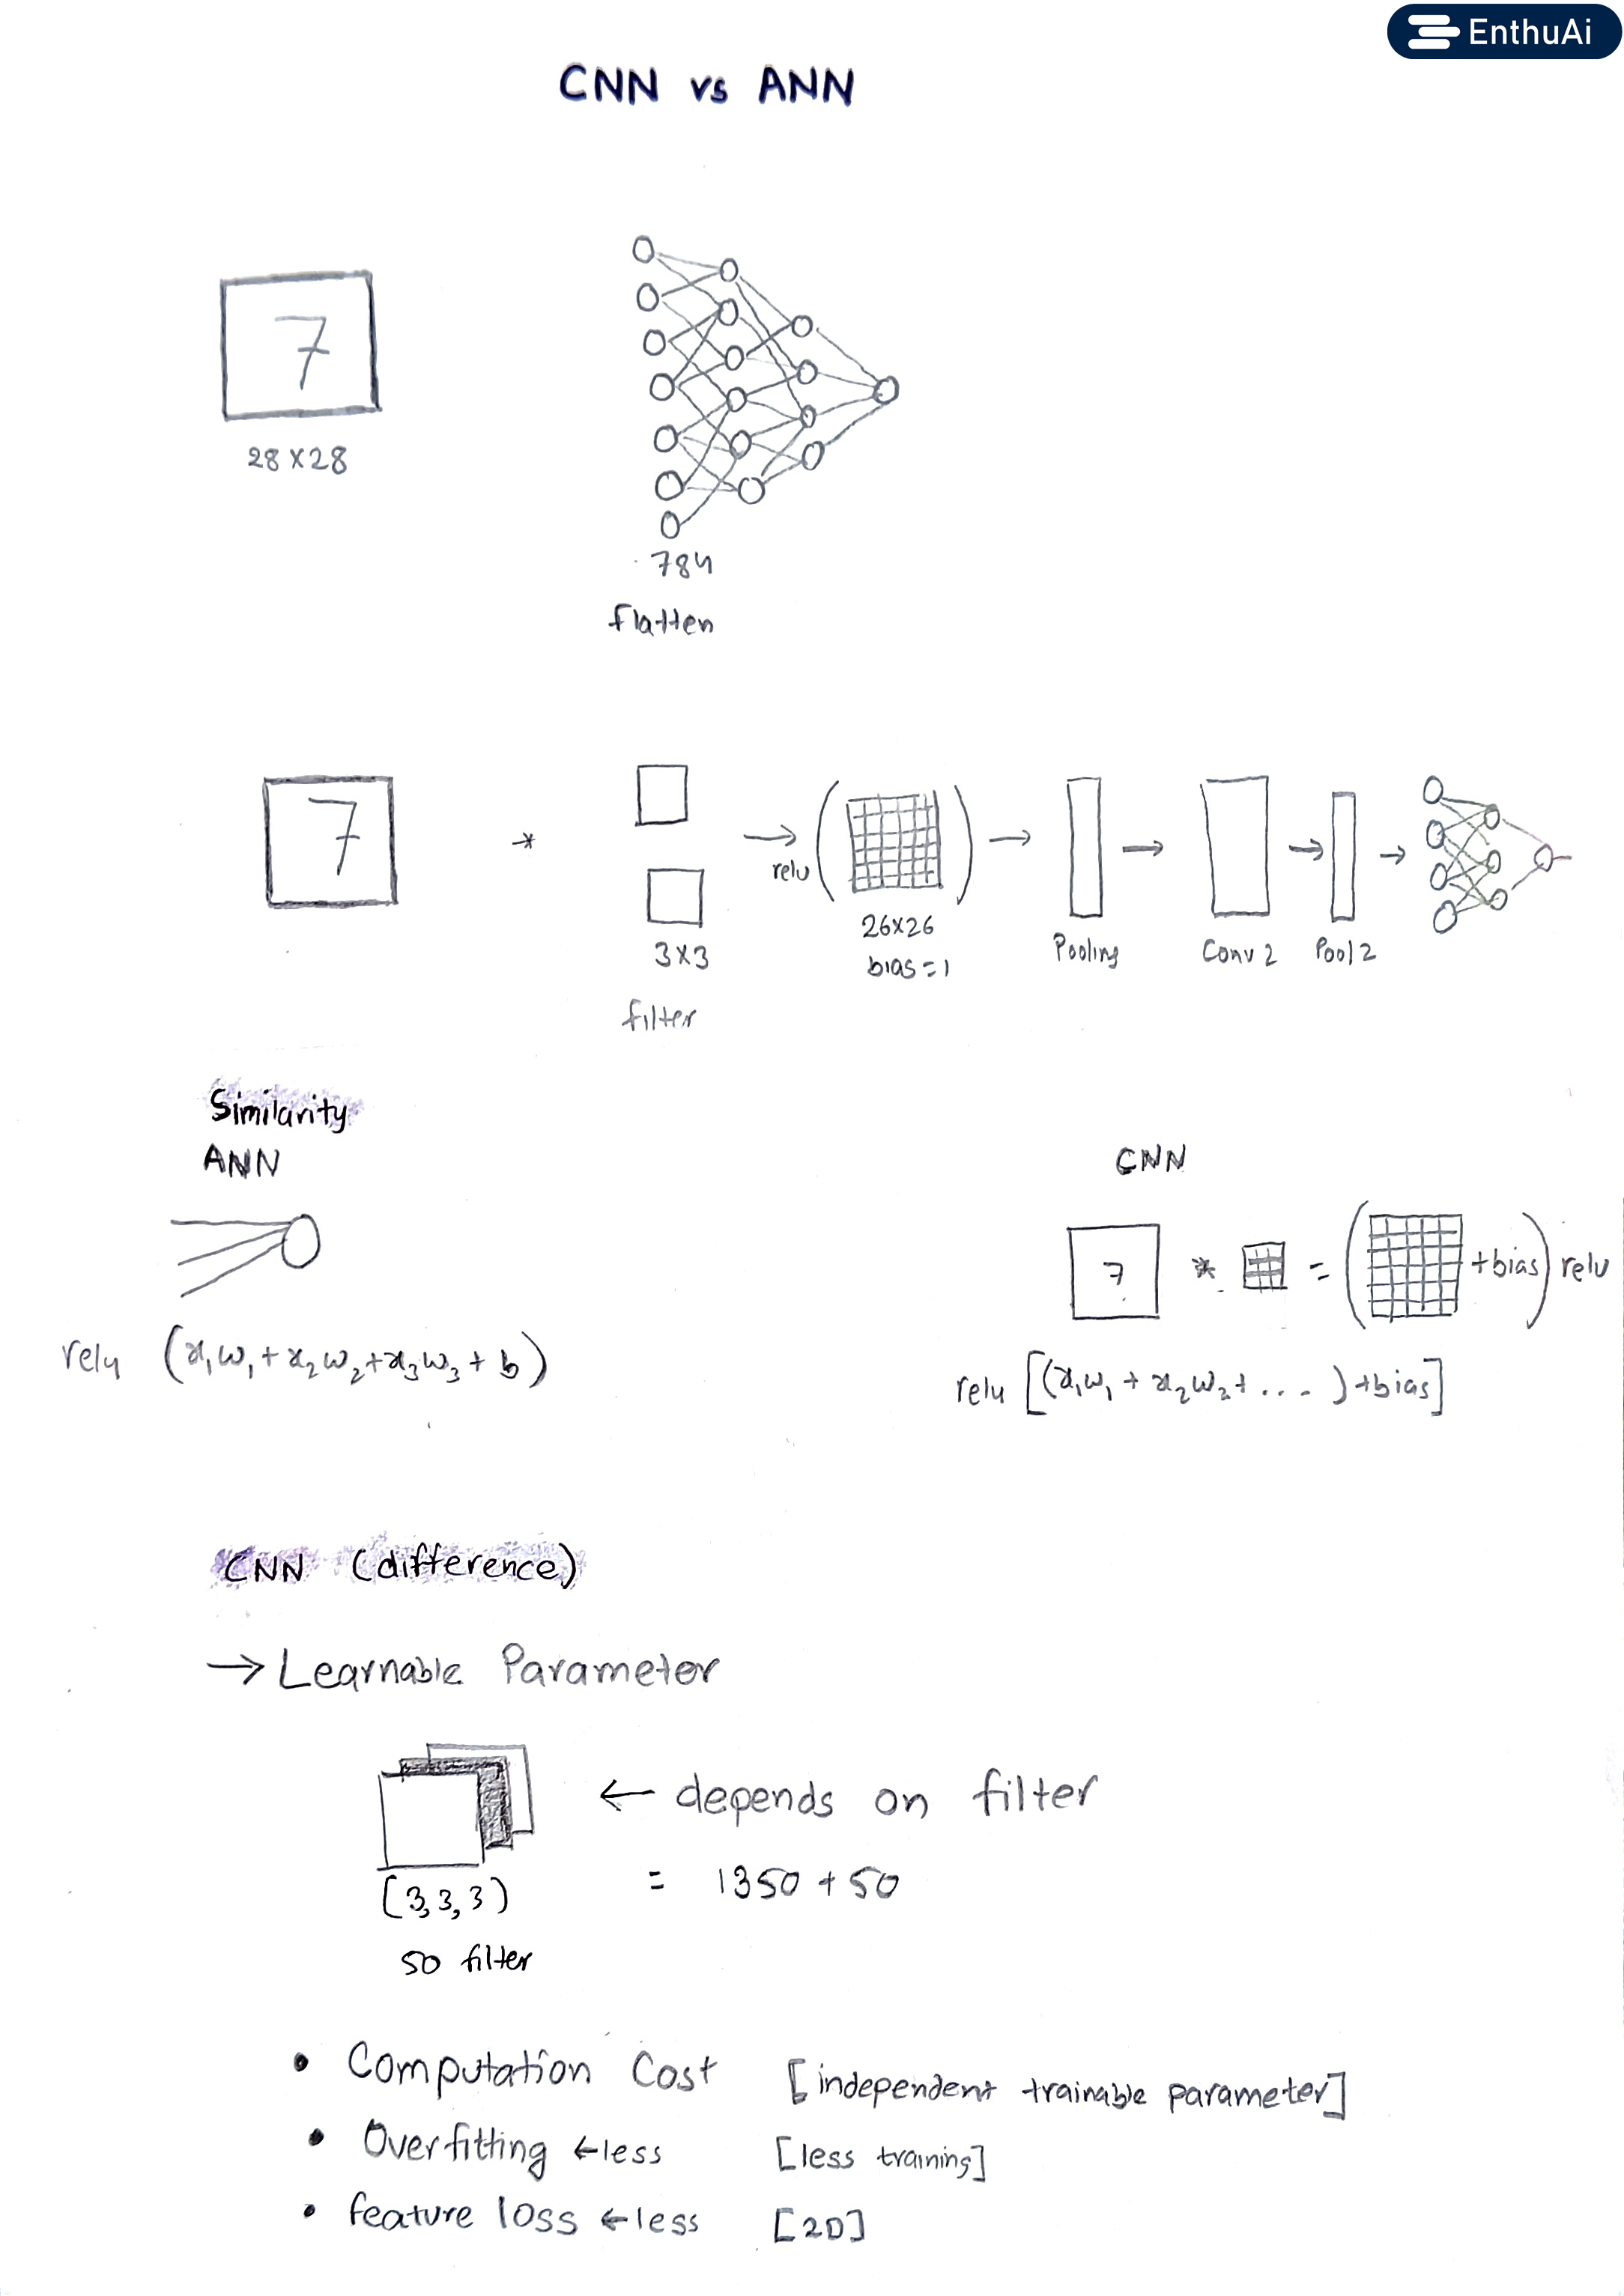 EnthuAi
CNN vs ANN
7
28×28
784
flatten
7
*
3×3
filter
→
relu
26×26
bias=1
→
Pooling
→
Conv 2
→
Pool 2
→
Similarity
ANN
relu (x₁w₁+x₂w₂+x₃w₃+b)
CNN
7 * = ( +bias) relu
relu [(x₁w₁+x₂w₂+...)+bias]
CNN (difference)
→ Learnable Parameter
← depends on filter
(3,3,3)
= 1350+50
50 filter
• Computation Cost [independent trainable parameter]
• Overfitting ←less [less training]
• feature loss ←less [2D]